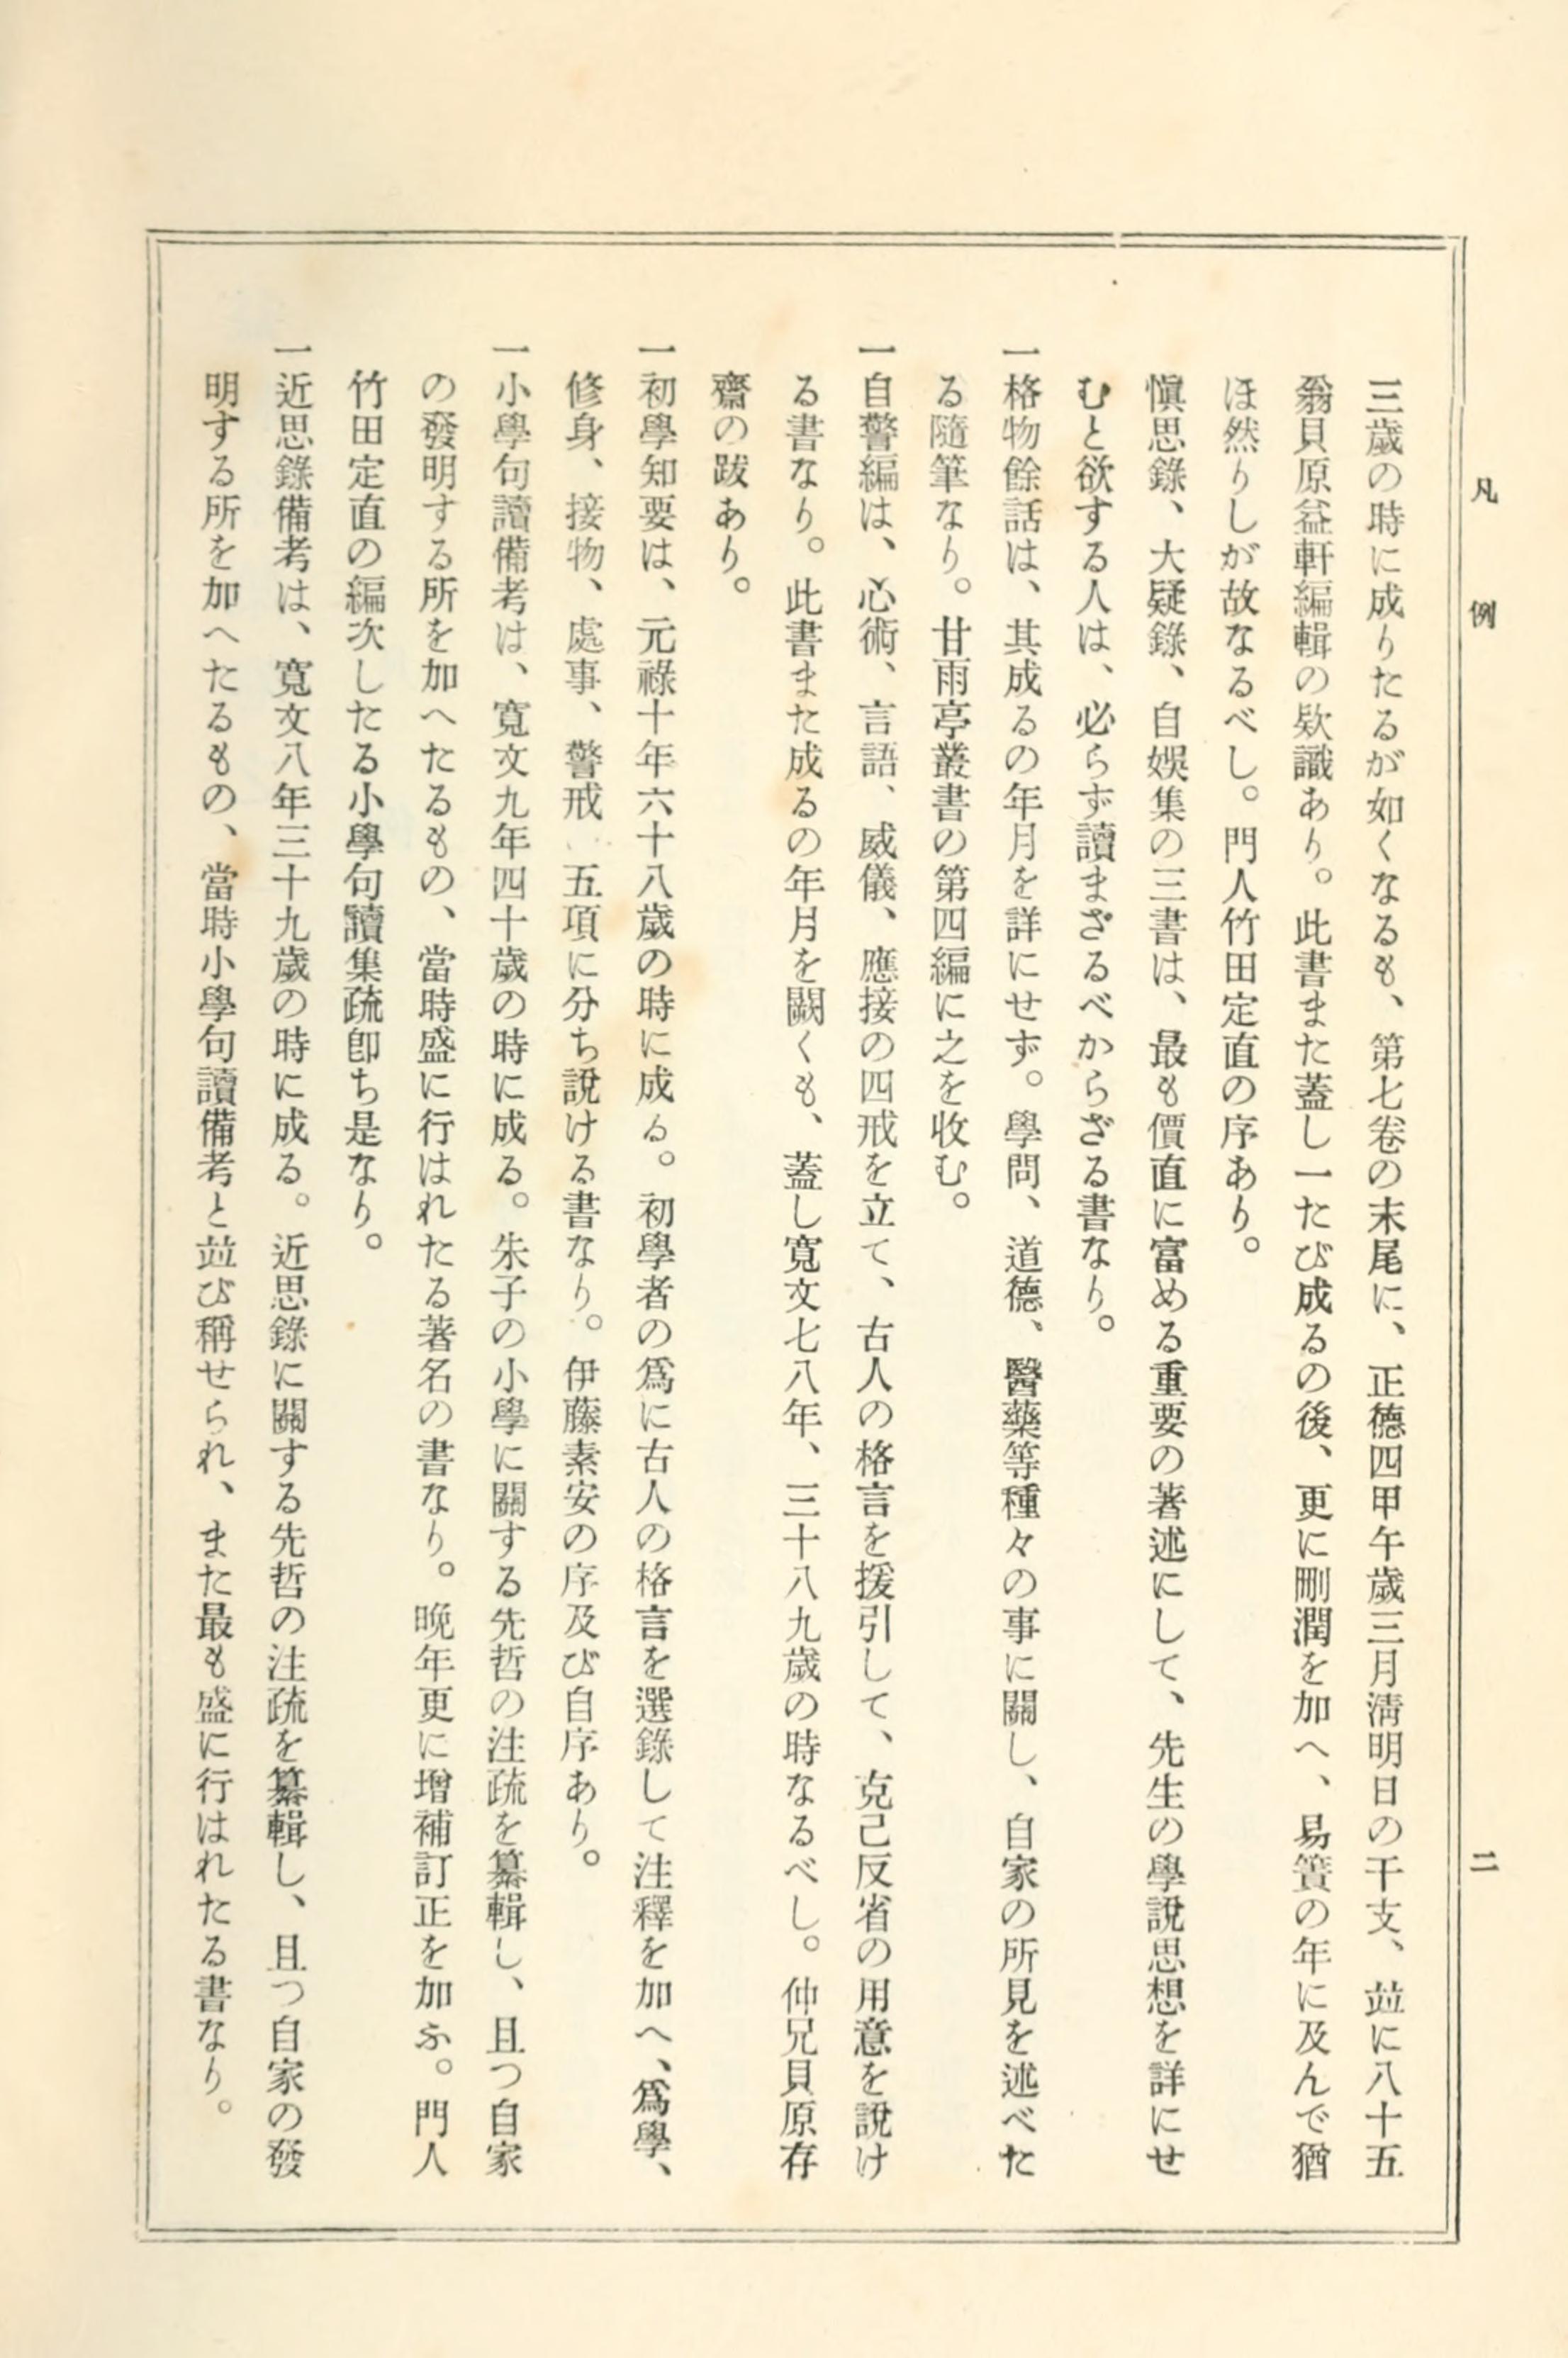 凡例
二
三歲の時に成りたるが如くなるも、第七卷の末尾に、正德四甲午歲三月淸明日の干支、竝に八十五
翁貝原益軒編輯の欵識あり。此書また蓋し一たび成るの後、更に刪潤を加へ、易簀の年に及んで猶
ほ然りしが故なるべし。門人竹田定直の序あり。
愼思錄、大疑錄、自娛集の三書は、最も價直に富める重要の著述にして、先生の學說思想を詳にせ
むと欲する人は、必らず讀まざるべからざる書なり。
一格物餘話は、其成るの年月を詳にせず。學問、道德、醫藥等種々の事に關し、自家の所見を述べた
る隨筆なり。甘雨亭叢書の第四編に之を收む。
一自警編は、心術、言語、威儀、應接の四戒を立て、古人の格言を援引して、克己反省の用意を說け
る書なり。此書また成るの年月を闕くも、蓋し寬文七八年、三十八九歲の時なるべし。仲兄貝原存
齋の跋あり。
一初學知要は、元祿十年六十八歲の時に成る。初學者の爲に古人の格言を選錄して注釋を加へ、爲學、
修身、接物、處事、警戒、五項に分ち說ける書なり。伊藤素安の序及び自序あり。
一小學句讀備考は、寬文九年四十歲の時に成る。朱子の小學に關する先哲の注疏を纂輯し、且つ自家
の發明する所を加へたるもの、當時盛に行はれたる著名の書なり。晩年更に增補訂正を加ふ。門人
竹田定直の編次したる小學句讀集疏卽ち是なり。
一近思錄備考は、寬文八年三十九歲の時に成る。近思錄に關する先哲の注疏を纂輯し、且つ自家の發
明する所を加へたるもの、當時小學句讀備考と竝び稱せられ、また最も盛に行はれたる書なり。